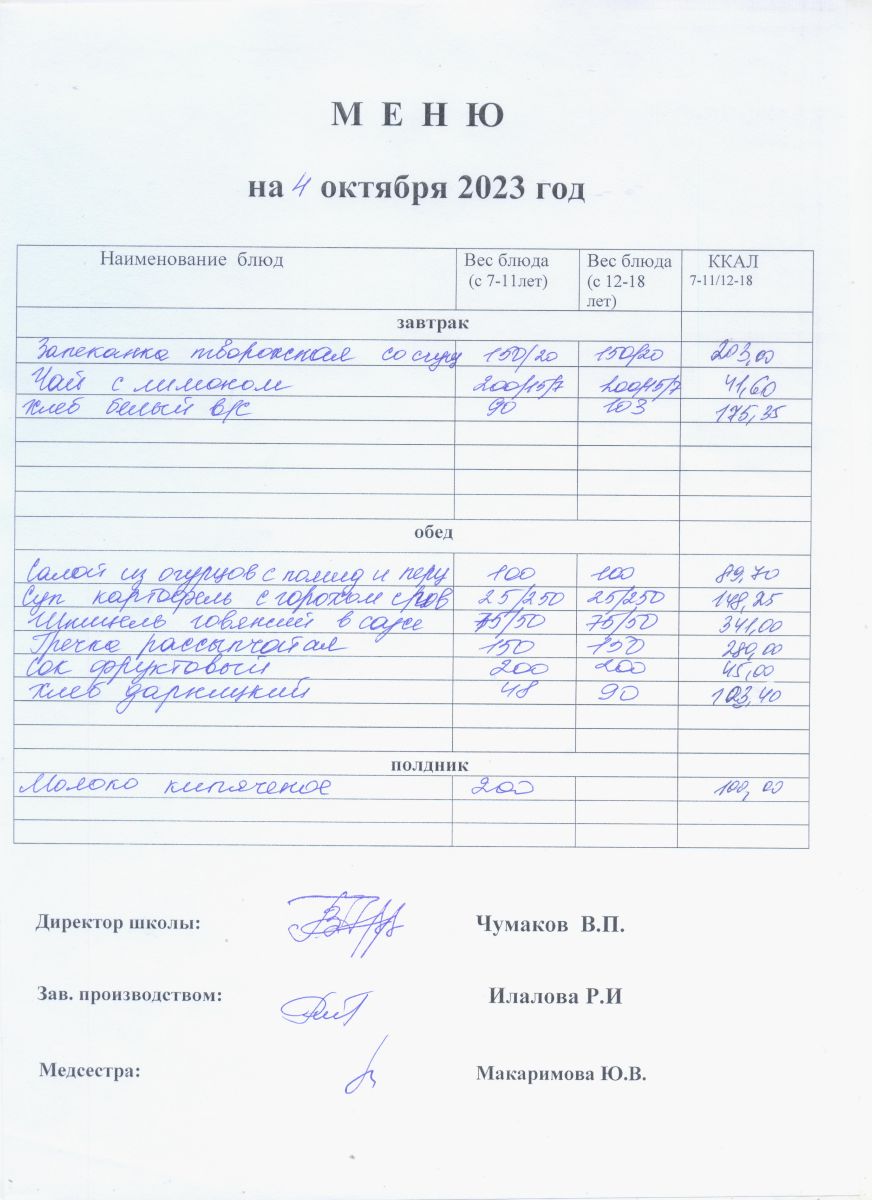 М Е Н Ю
на 4 октября 2023 год
Наименование блюд Вес блюда (с 7-11лет) Вес блюда (с 12-18 лет) ККАЛ 7-11/12-18
завтрак
Запеканка творожная со сгущ 150/20 150/20 203,00
Чай с лимоном 200/15/7 200/15/7 41,60
Хлеб белый в/с 90 103 175,35
обед
Салат из огурцов с помид и перц 100 100 89,70
Суп картофель с горохом 25/250 25/250 148,25
Шницель говяжий в соусе 75/50 75/50 341,00
Гречка рассыпчатая 150 150 280,00
Сок фруктовый 200 200 45,00
Хлеб дарницкий 48 90 123,40
полдник
Молоко кипяченое 200 100,00
Директор школы: Чумаков В.П.
Зав. производством: Илалова Р.И
Медсестра: Макаримова Ю.В.